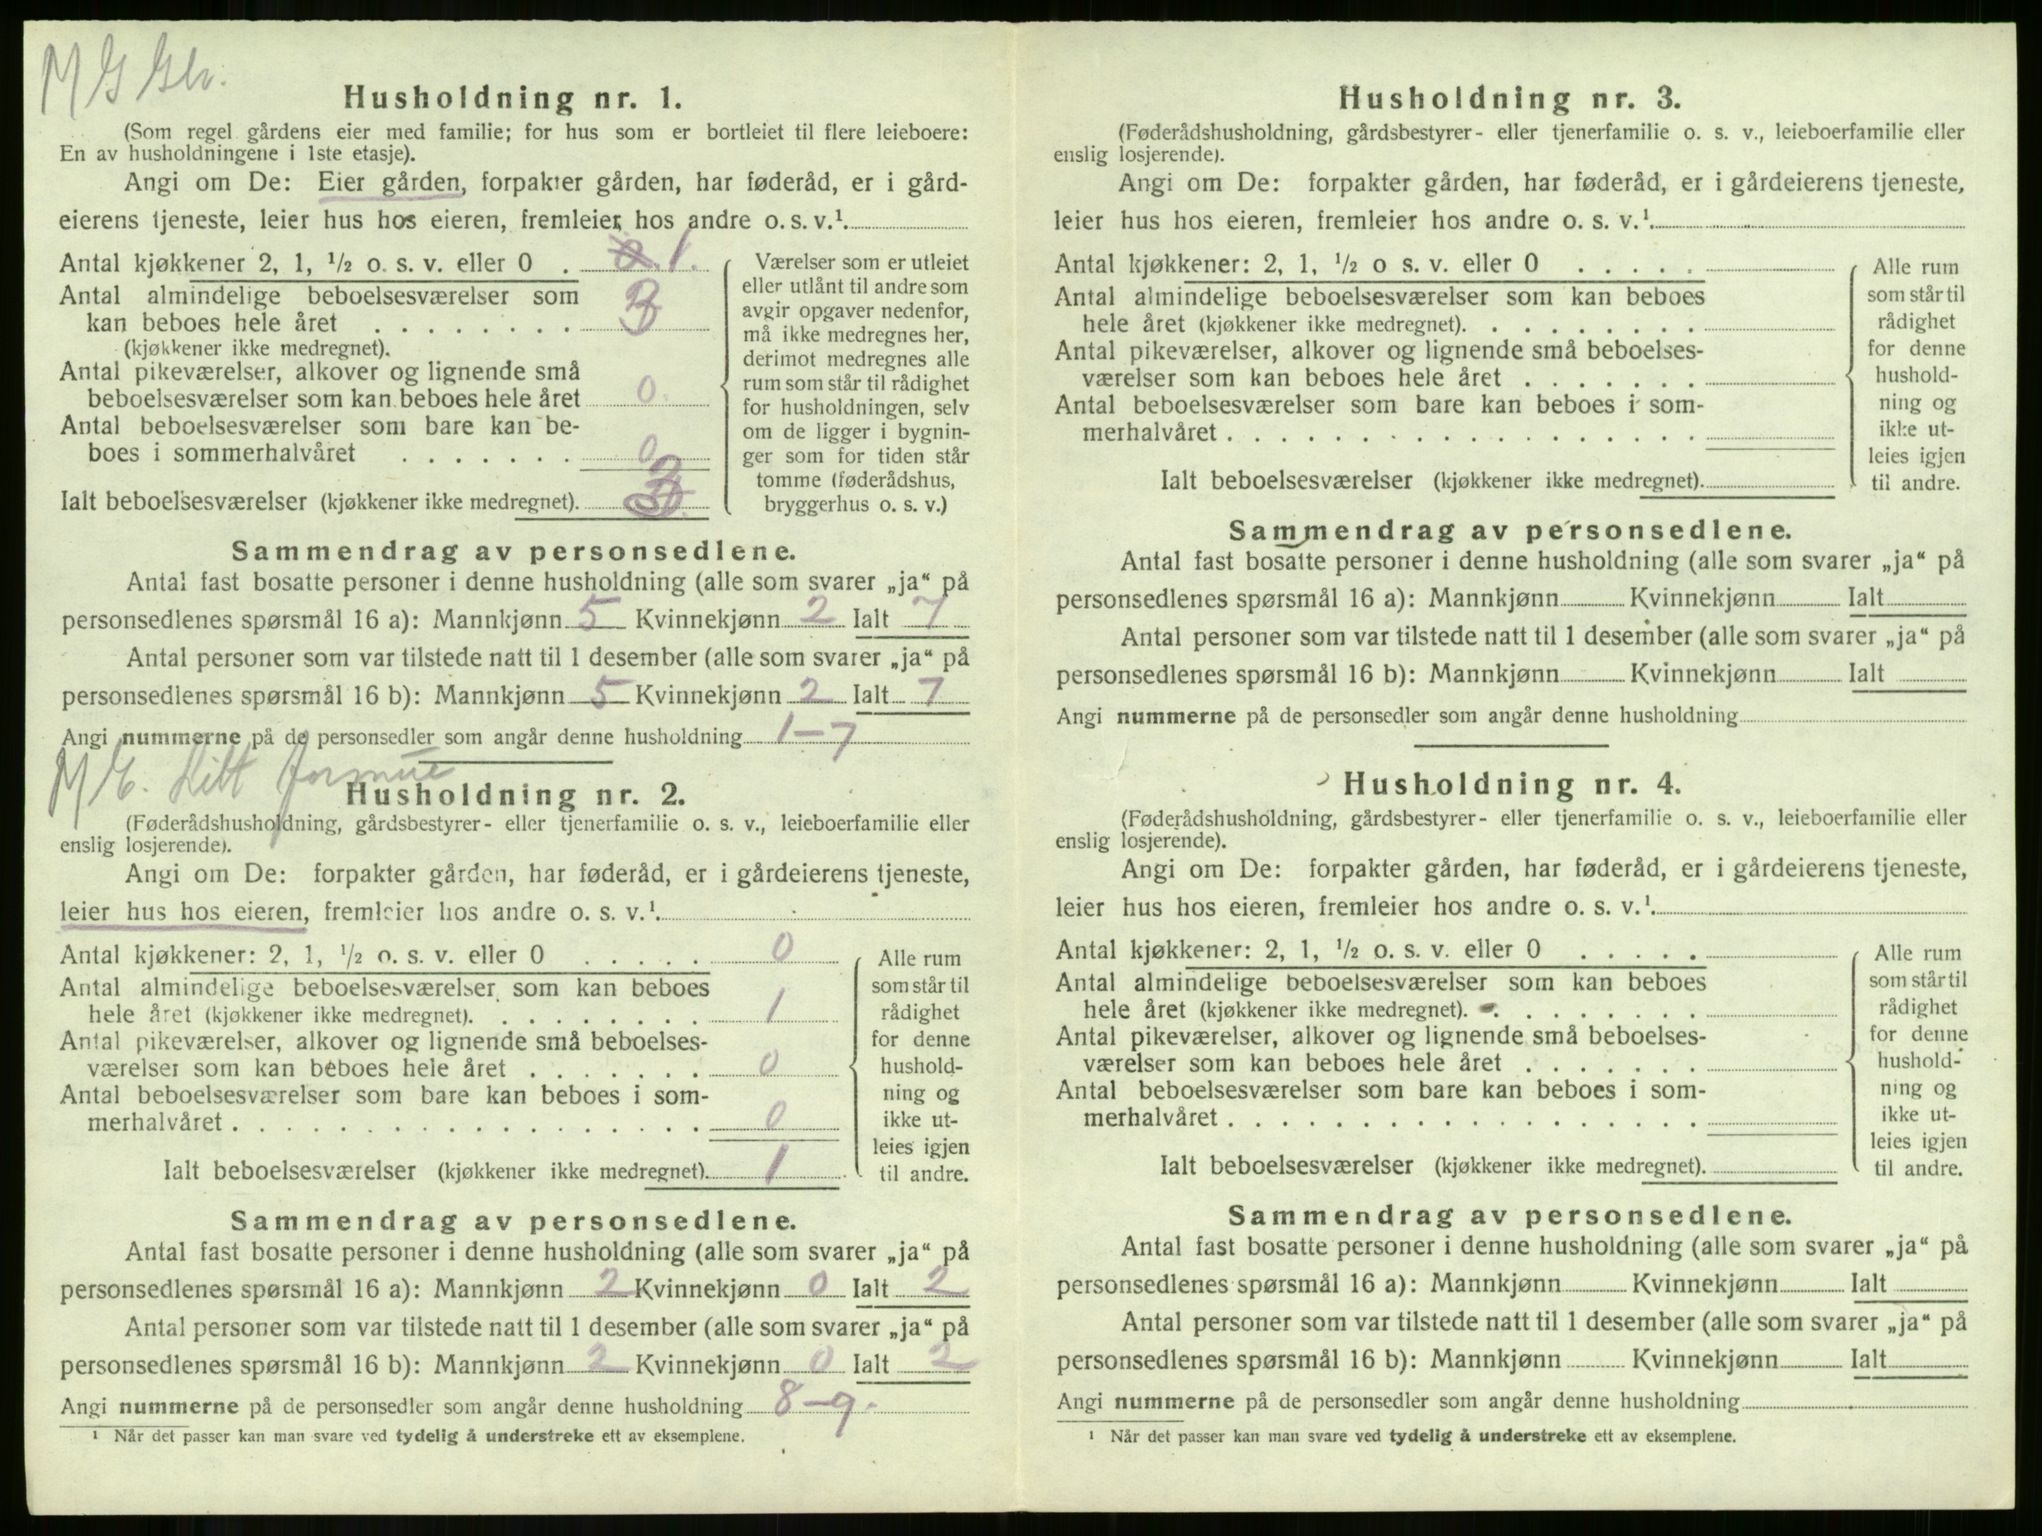 M G Glv.
Husholdning nr. 1.
(Som regel gårdens eier med familie; for hus som er bortleiet til flere leieboere:
En av husholdningene i 1ste etasje).
Angi om De: Eier gården, forpakter gården, har føderåd, er i gård-
eierens tjeneste, leier hus hos eieren, fremleier hos andre o. s. v.¹.
Antal kjøkkener 2, 1, ½ o. s. v. eller 0 . 1.
Antal almindelige beboelsesværelser som
kan beboes hele året . . . . . . . . 3
(kjøkkener ikke medregnet).
Antal pikeværelser, alkover og lignende små
beboelsesværelser som kan beboes hele året 0.
Antal beboelsesværelser som bare kan be-
boes i sommerhalvåret . . . . . . . 0
Ialt beboelsesværelser (kjøkkener ikke medregnet). 3
Værelser som er utleiet
eller utlånt til andre som
avgir opgaver nedenfor,
må ikke medregnes her,
derimot medregnes alle
rum som står til rådighet
for husholdningen, selv
om de ligger i bygnin-
ger som for tiden står
tomme (føderådshus,
bryggerhus o. s. v.)
Sammendrag av personsedlene.
Antal fast bosatte personer i denne husholdning (alle som svarer „ja“ på
personsedlenes spørsmål 16 a): Mannkjønn 5 Kvinnekjønn 2 Ialt 7
Antal personer som var tilstede natt til 1 desember (alle som svarer „ja“ på
personsedlenes spørsmål 16 b): Mannkjønn 5 Kvinnekjønn 2 Ialt 7
Angi nummerne på de personsedler som angår denne husholdning 1-7
M E. Litt formue
Husholdning nr. 2.
(Føderådshusholdning, gårdsbestyrer- eller tjenerfamilie o. s. v., leieboerfamilie eller
enslig losjerende).
Angi om De: forpakter gården, har føderåd, er i gårdeierens tjeneste,
leier hus hos eieren, fremleier hos andre o. s. v.¹.
Antal kjøkkener: 2, 1, ½ o. s. v. eller 0 . . . . . 0
Antal almindelige beboelsesværelser som kan beboes
hele året (kjøkkener ikke medregnet). . . . . . . . . 1
Antal pikeværelser, alkover og lignende små beboelses-
værelser som kan beboes hele året . . . . . . . 0
Antal beboelsesværelser som bare kan beboes i som-
merhalvåret . . . . . . . . . . . . . . . . . . 0
Ialt beboelsesværelser (kjøkkener ikke medregnet). 1
Alle rum
som står til
rådighet
for denne
hushold-
ning og
ikke ut-
leies igjen
til andre.
Sammendrag av personsedlene.
Antal fast bosatte personer i denne husholdning (alle som svarer „ja“ på
personsedlenes spørsmål 16 a): Mannkjønn 2 Kvinnekjønn 0 Ialt 2
Antal personer som var tilstede natt til 1 desember (alle som svarer „ja“ på
personsedlenes spørsmål 16 b): Mannkjønn 2 Kvinnekjønn 0 Ialt 2
Angi nummerne på de personsedler som angår denne husholdning 8-9.
¹ Når det passer kan man svare ved tydelig å understreke ett av eksemplene.
Husholdning nr. 3.
(Føderådshusholdning, gårdsbestyrer- eller tjenerfamilie o. s. v., leieboerfamilie eller
enslig losjerende).
Angi om De: forpakter gården, har føderåd, er i gårdeierens tjeneste,
leier hus hos eieren, fremleier hos andre o. s. v.¹.
Antal kjøkkener: 2, 1, ½ o s. v. eller 0 . . . . .
Antal almindelige beboelsesværelser som kan beboes
hele året (kjøkkener ikke medregnet). . . . . . . . .
Antal pikeværelser, alkover og lignende små beboelses-
værelser som kan beboes hele året . . . . . . .
Antal beboelsesværelser som bare kan beboes i som-
merhalvåret . . . . . . . . . . . . . . . . . .
Ialt beboelsesværelser (kjøkkener ikke medregnet).
Alle rum
som står til
rådighet
for denne
hushold-
ning og
ikke ut-
leies igjen
til andre.
Sammendrag av personsedlene.
Antal fast bosatte personer i denne husholdning (alle som svarer „ja“ på
personsedlenes spørsmål 16 a): Mannkjønn Kvinnekjønn Ialt
Antal personer som var tilstede natt til 1 desember (alle som svarer „ja“ på
personsedlenes spørsmål 16 b): Mannkjønn Kvinnekjønn Ialt
Angi nummerne på de personsedler som angår denne husholdning
Husholdning nr. 4.
(Føderådshusholdning, gårdsbestyrer- eller tjenerfamilie o. s. v., leieboerfamilie eller
enslig losjerende).
Angi om De: forpakter gården, har føderåd, er i gårdeierens tjeneste,
leier hus hos eieren, fremleier hos andre o. s. v.¹.
Antal kjøkkener: 2, 1, ½ o. s. v. eller 0 . . . . .
Antal almindelige beboelsesværelser som kan beboes
hele året (kjøkkener ikke medregnet). . . . . . . . .
Antal pikeværelser, alkover og lignende små beboelses-
værelser som kan beboes hele året . . . . . . .
Antal beboelsesværelser som bare kan beboes i som-
merhalvåret . . . . . . . . . . . . . . . . . .
Ialt beboelsesværelser (kjøkkener ikke medregnet).
Alle rum
som står til
rådighet
for denne
hushold-
ning og
ikke ut-
leies igjen
til andre.
Sammendrag av personsedlene.
Antal fast bosatte personer i denne husholdning (alle som svarer „ja“ på
personsedlenes spørsmål 16 a): Mannkjønn Kvinnekjønn Ialt
Antal personer som var tilstede natt til 1 desember (alle som svarer „ja“ på
personsedlenes spørsmål 16 b): Mannkjønn Kvinnekjønn Ialt
Angi nummerne på de personsedler som angår denne husholdning
¹ Når det passer kan man svare ved tydelig å understreke ett av eksemplene.